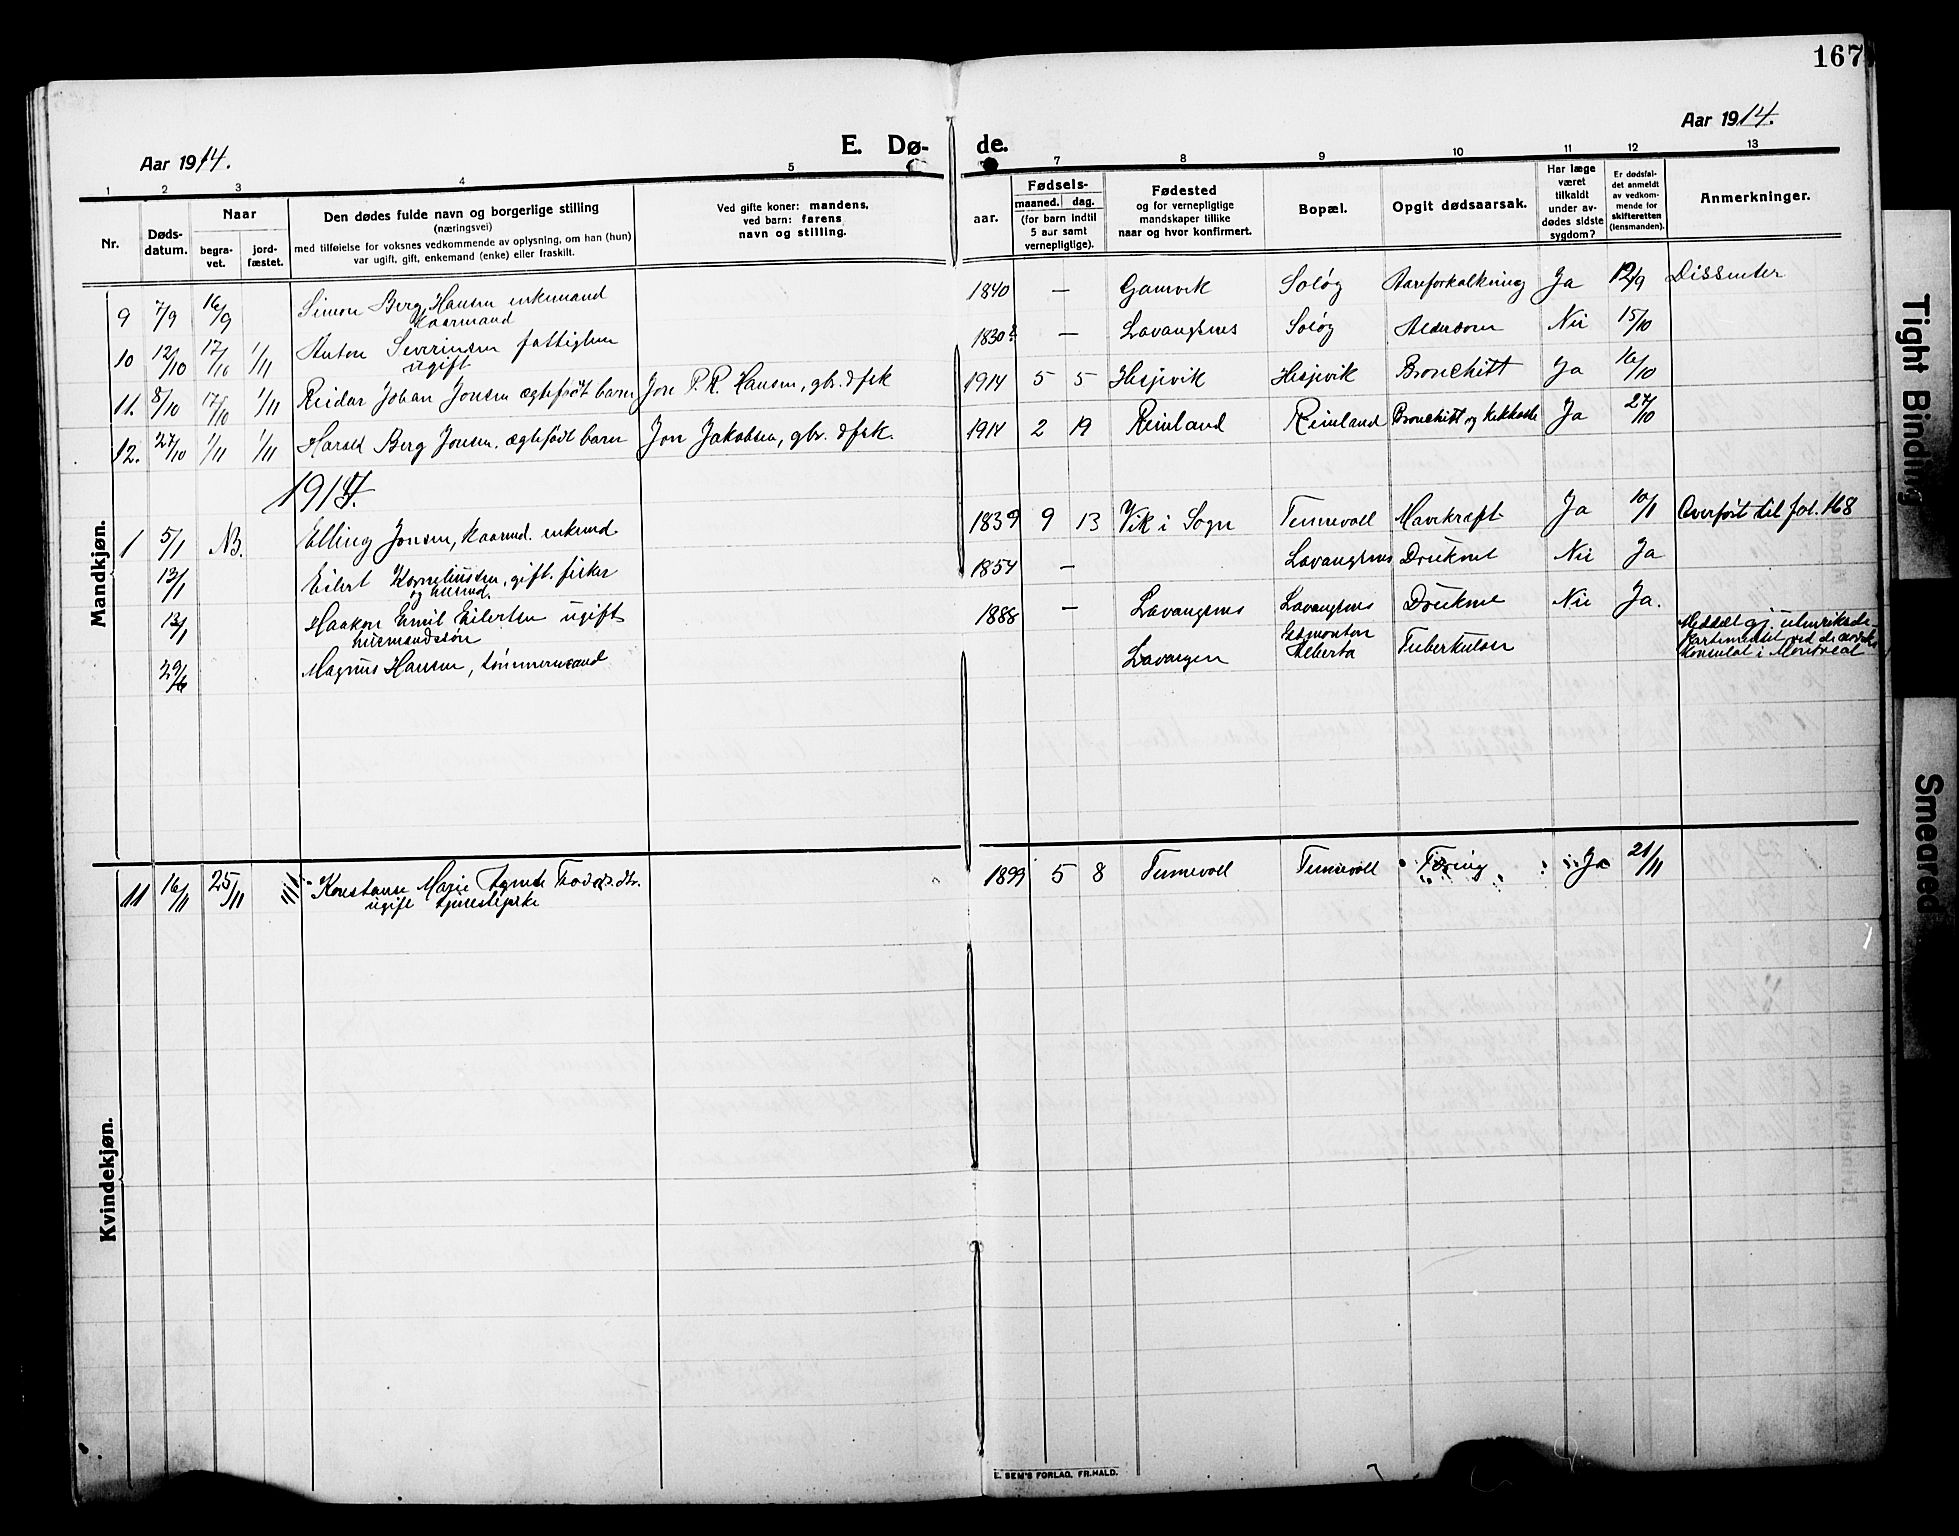 167
Aar 1914.
E. Dø-
de.
Aar 1914.
1 2 3 4 5 7 8 9 10 11 12 13
Nr.
Døds-
datum.
Naar
begra-
vet.
jord-
fæstet.
Den dødes fulde navn og borgerlige stilling
(næringsvei)
med tilføielse for voksnes vedkommende av oplysning, om han (hun)
var ugift, gift, enkemand (enke) eller fraskilt.
Ved gifte koner: mandens,
ved barn: farens
navn og stilling.
aar.
Fødsels-
maaned. dag.
(for barn indtil
5 aar samt
vernepligtige).
Fødested
og for vernepligtige
mandskaper tillike
naar og hvor konfirmert.
Bopæl.
Opgit dødsaarsak.
Har læge
været
tilkaldt
under av-
dødes sidste
sygdom?
Er dødsfal-
det anmeldt
av vedkom-
mende for
skifteretten
(lensmanden).
Anmerkninger.
Mandkjøn.
9 7/9 16/9 Simon Berg Hansen enkemand 1840 — Gamvik Soløg Aareforkalkning Ja 12/9 Dissenter
Kaarmand
10 12/10 17/10 1/11 Anton Severinsen fattiglem 1830? — Lavangsnes Soløg Alderdom Nei 15/10
ugift
11. 8/10 17/10 1/11 Reidar Johan Jonsen ægtefødt barn Jon P. R. Hansen, gbr. & fsk 1914 5 5 Hesjevik Hesjevik Bronchitt Ja 16/10
12. 27/10 1/11 1/11 Harald Berg Jonsen. ægtefødt barn Jon Jakobsen, gbr. & fsk. 1914 2 19 Reinland Reinland Bronchitt og Kikhoste Ja 27/10
1914.
1 5/1 NB. Elling Jonsen, Kaarmd. enkemd 1839 9 13 Vik i Sogn Tennevoll Mavekræft Ja 10/1 Overført til fol. 168
13/1 Eilert Korneliussen, gift. fisker 1854 — Lavangsnes Druknet Nei Ja
og husmd.
13/1 Haakon Emil Eilertsen ugift 1888 — Lavangsnes Lavangsnes Druknet Nei Ja.
husmandssøn
29/6 Magnus Hansen, tømmermand Lavangen Edmonton Alberta Tuberkulose Meddelt gj. utenriksde-
partementet ved de norske
Konsulat i Montreal
Kvindekjøn.
11 16/11 25/11 Konstanse Marie Agnete 1899 5 8 Tennevoll Tennevoll Tæring Ja 21/11
ugift tjenestepike
E. SEM'S FORLAG, FR.HALD.
Tight Binding
Smeared